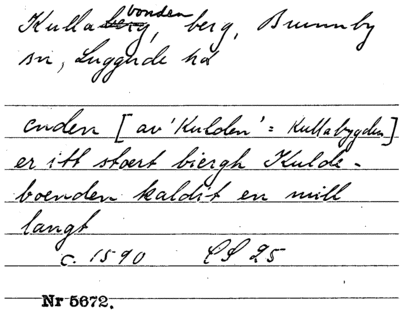 Kullabonden, berg, Brunnby
sn, Luggude hd
enden [av 'Kulden' = Kullabygden]
er itt stoert biergh Kulde-
boenden kaldit en mill
langt
c. 1590 CS 25
Nr 5672.